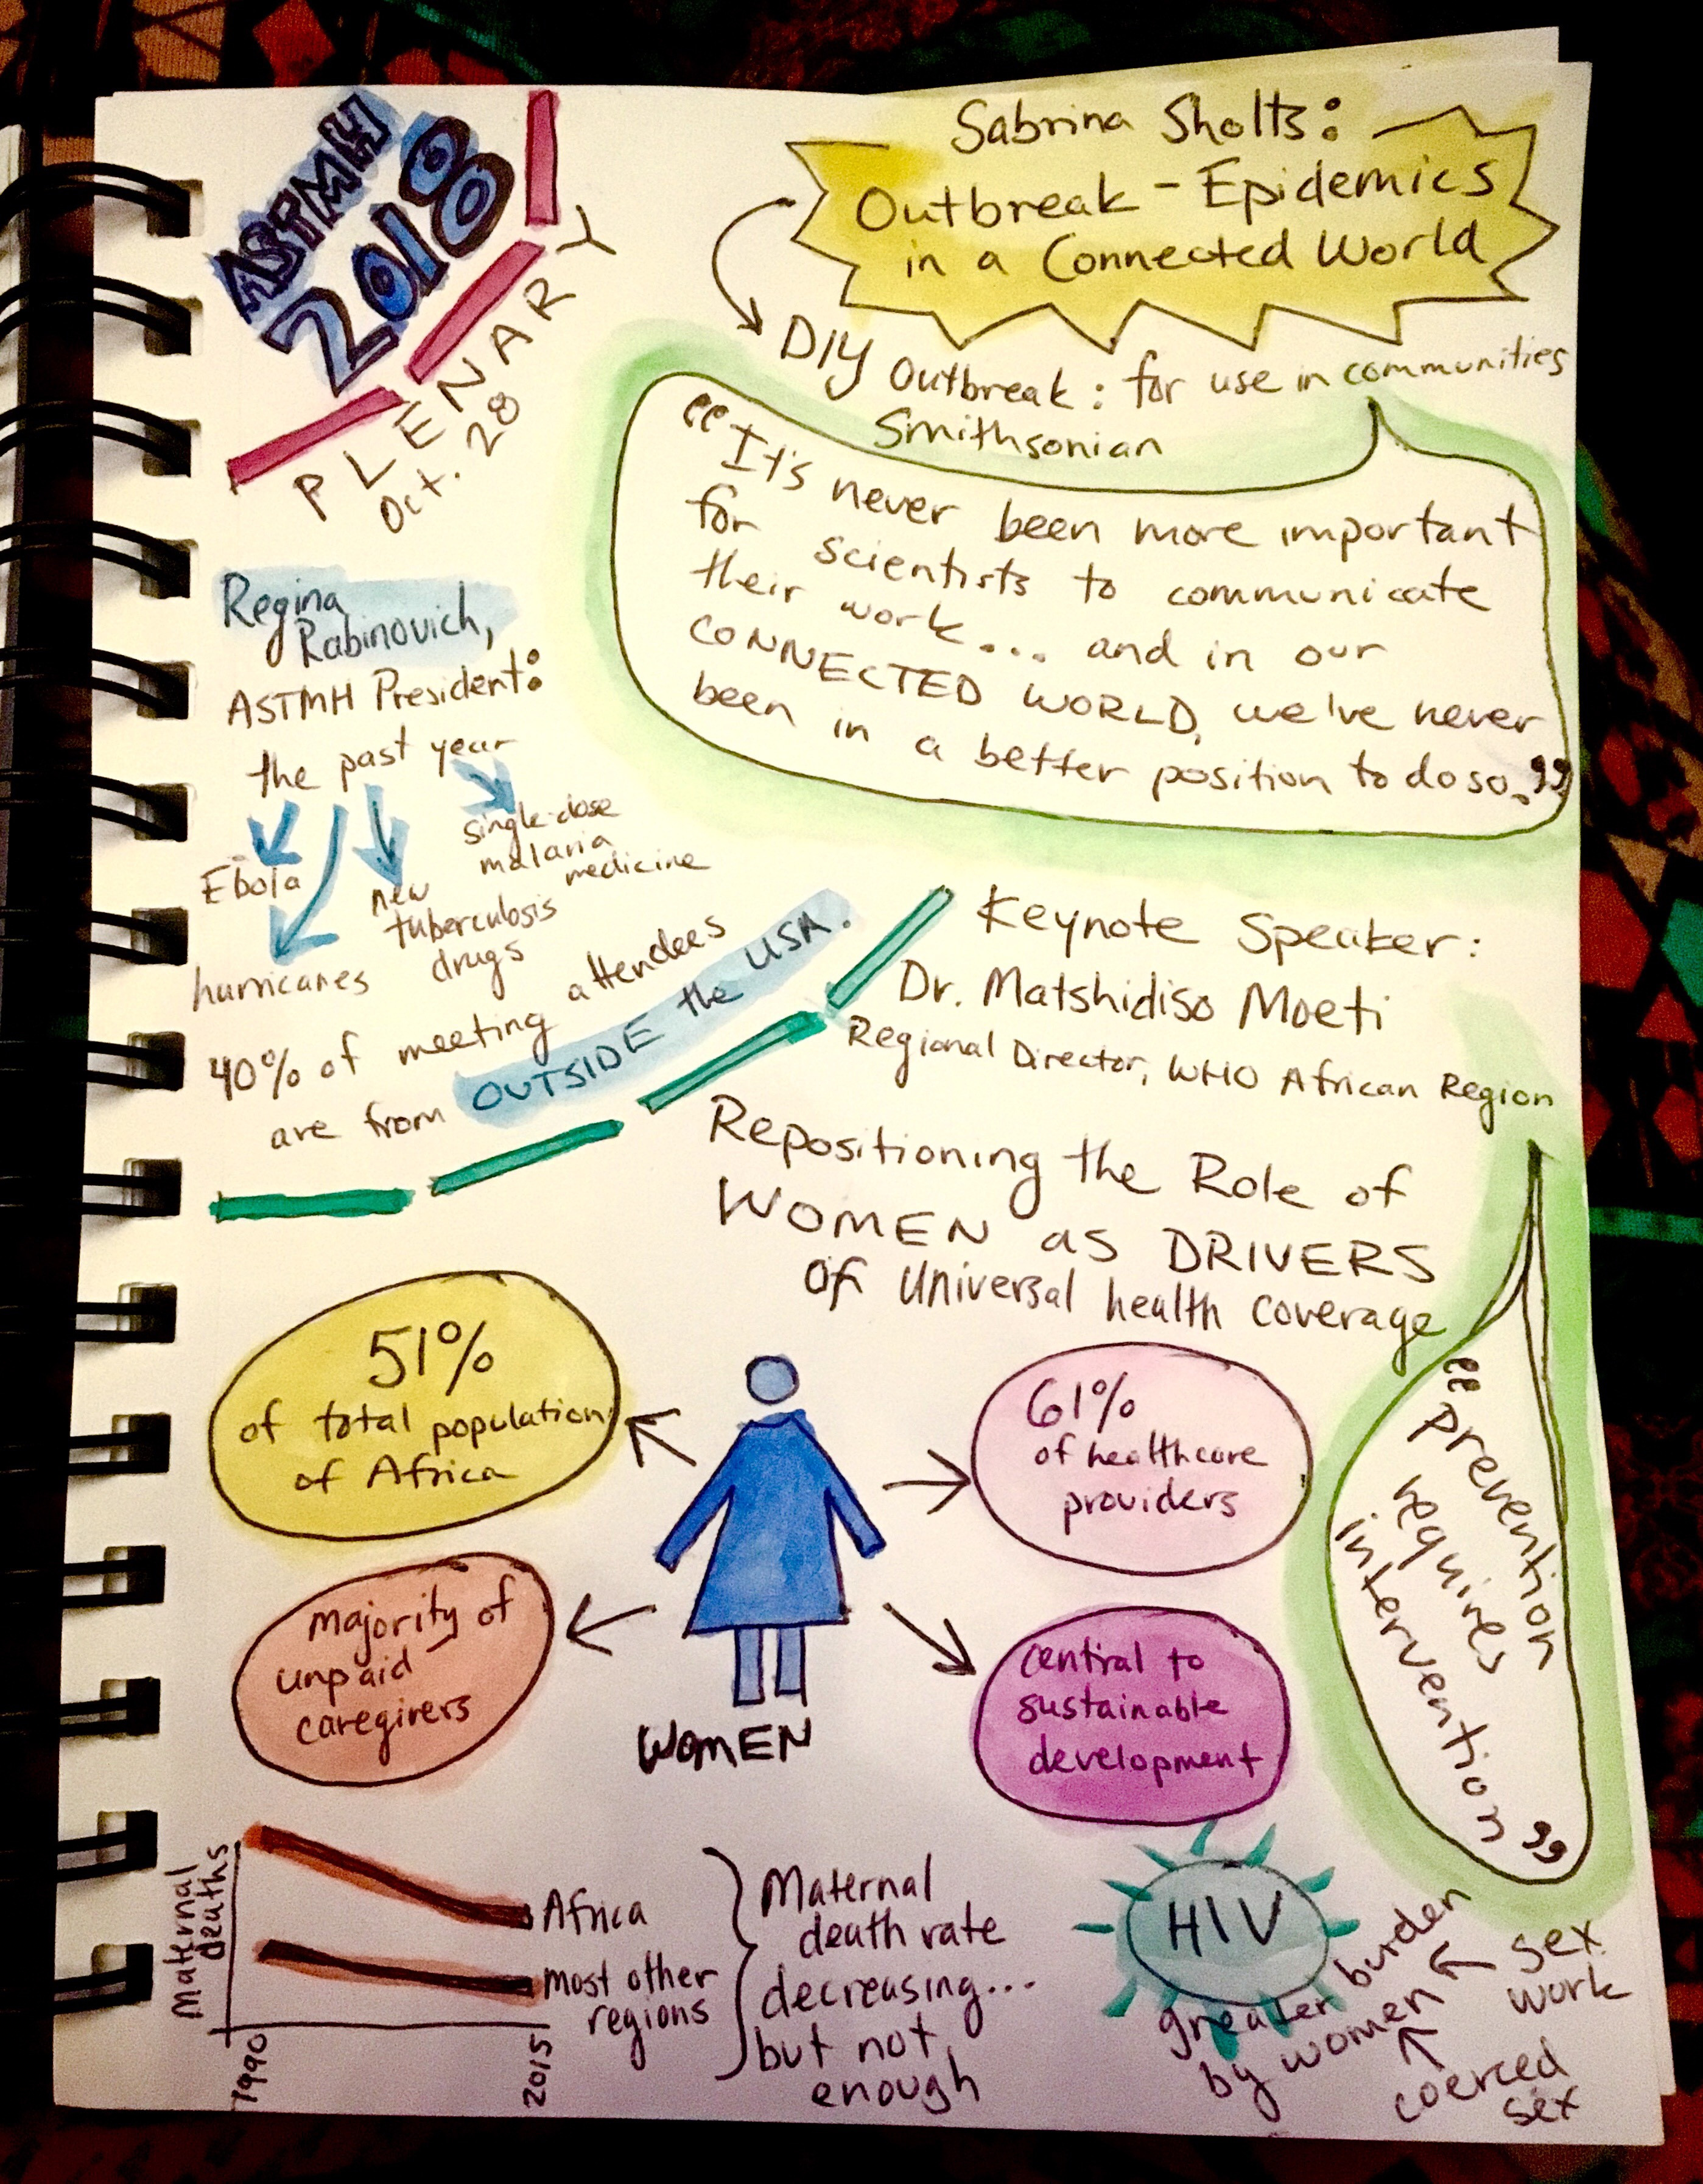 ASTMH
2018
PLENARY
Oct. 28
Sabrina Sholts:
Outbreak - Epidemics
in a Connected World
DIY Outbreak: for use in communities
Smithsonian
"It's never been more important
for scientists to communicate
their work... and in our
CONNECTED WORLD, we've never
been in a better position to do so."
Regina
Rabinovich,
ASTMH President:
the past year
Ebola
hurricanes
new
tuberculosis
drugs
single-dose
malaria
medicine
40% of meeting attendees
are from OUTSIDE the USA.
Keynote Speaker:
Dr. Matshidiso Moeti
Regional Director, WHO African Region
Repositioning the Role of
WOMEN as DRIVERS
of universal health coverage
"prevention
requires
intervention"
51%
of total population
of Africa
61%
of healthcare
providers
majority of
unpaid
caregivers
central to
sustainable
development
WOMEN
Maternal
deaths
1990
2015
Africa
most other
regions
Maternal
death rate
decreasing...
but not
enough
HIV
greater burden
by women
sex
work
coerced
sex